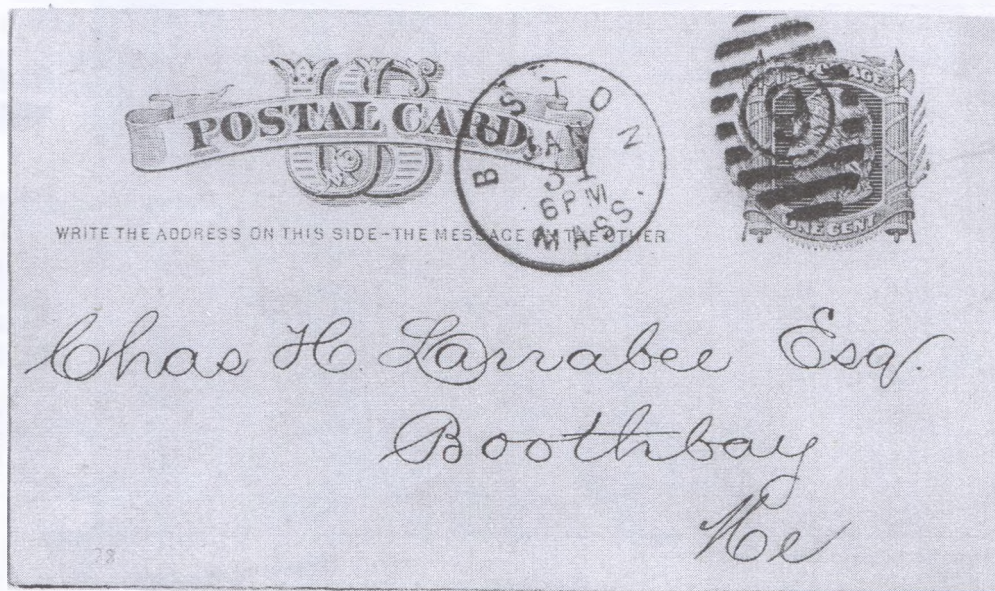 US
POSTAL CARD
WRITE THE ADDRESS ON THIS SIDE-THE MESSAGE ON THE OTHER
BOSTON
JAN
31
6 PM
MASS.
U.S. POSTAGE
ONE CENT
Chas H. Larrabee Esq.
Boothbay
Me
28